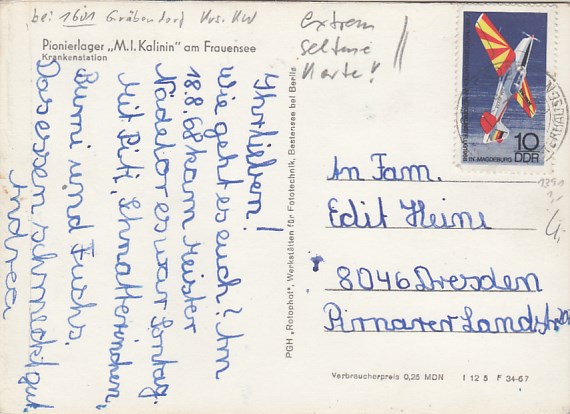 bei 1601 Gräbendorf Krs. KW
Pionierlager „M.I. Kalinin" am Frauensee
Krankenstation
extrem
seltene
Karte!
Ihr lieben!
Wie geht es euch? Am
18.8.68 kam Meister
Nadelöhr es war Sontag.
Mit Piti, Schnatterinchen,
Bumi und Fuchs.
Das essen schmeckt gut.
Andrea
PGH „Rotophot", Werkstätten für Fototechnik, Bestensee bei Berlin
10
DDR
IN MAGDEBURG
An Fam.
Edit Heini
8046 Dresden
Pirnarer Landstr.
Verbraucherpreis 0,25 MDN I 12 5 F 34-67